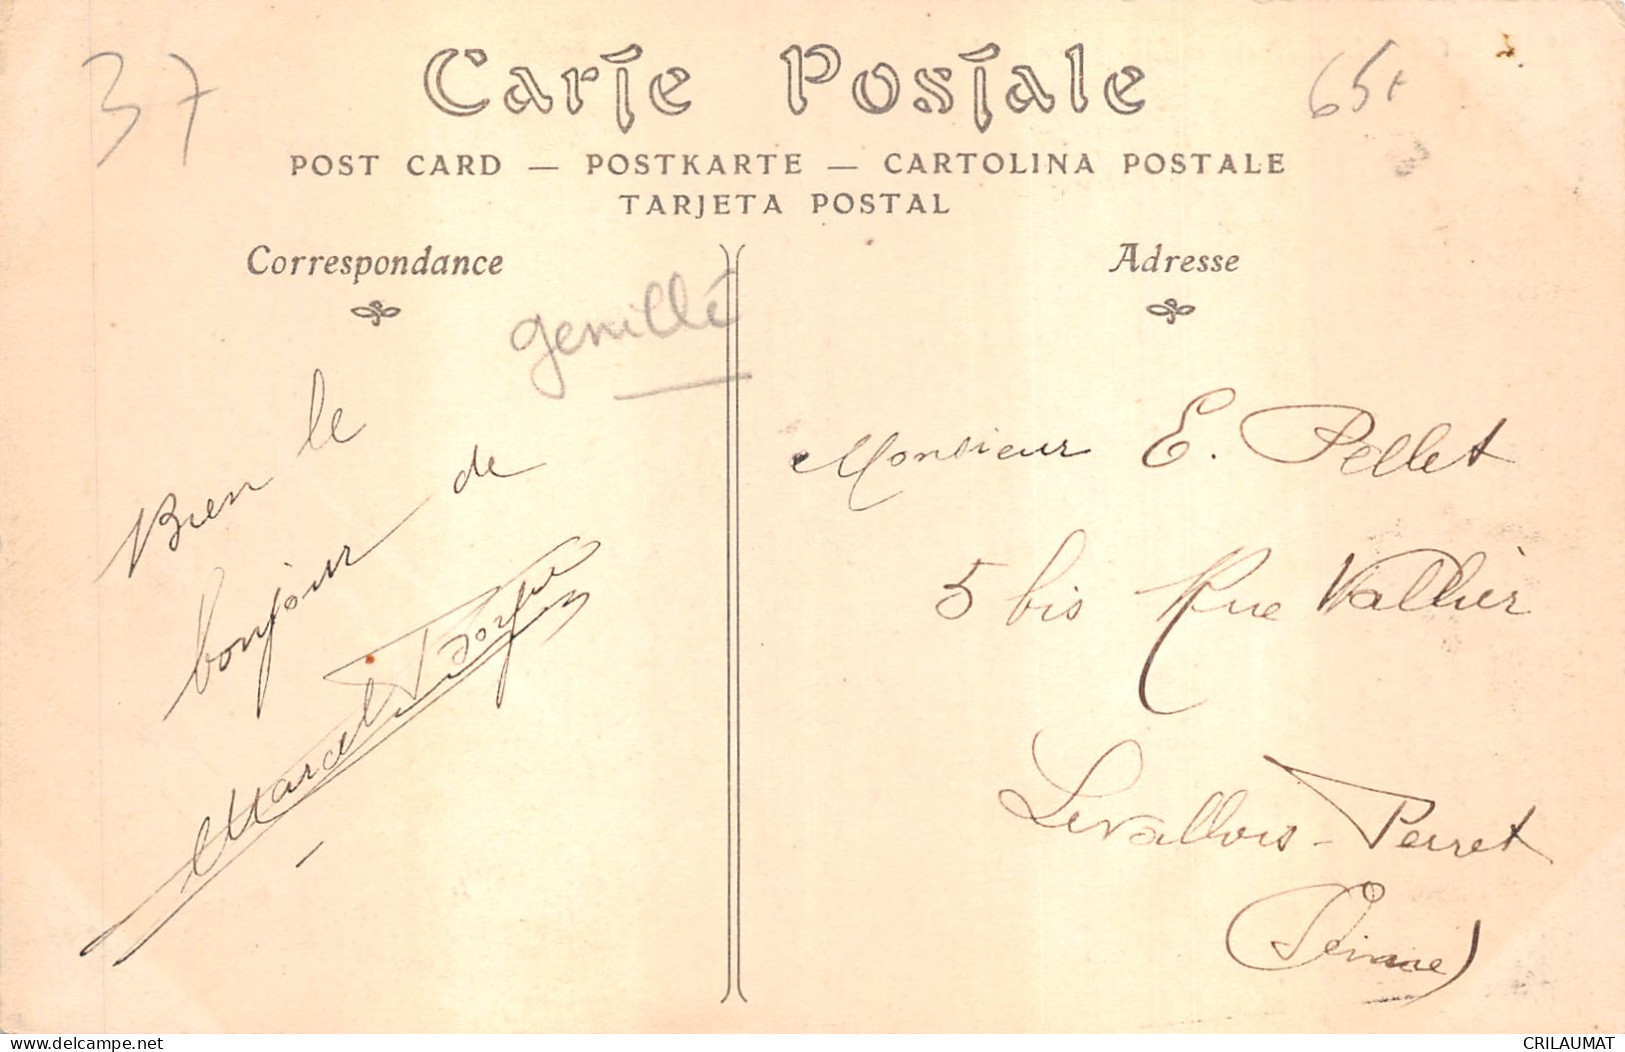 37
Carte Postale
65
POST CARD — POSTKARTE — CARTOLINA POSTALE
TARJETA POSTAL
Correspondance
Adresse
genillé
Bien le
bonjour de
Marcel
Monsieur E. Pellet
5 bis Rue Vallier
Levallois-Perret
(Seine)
www.delcampe.net
CRILAUMAT